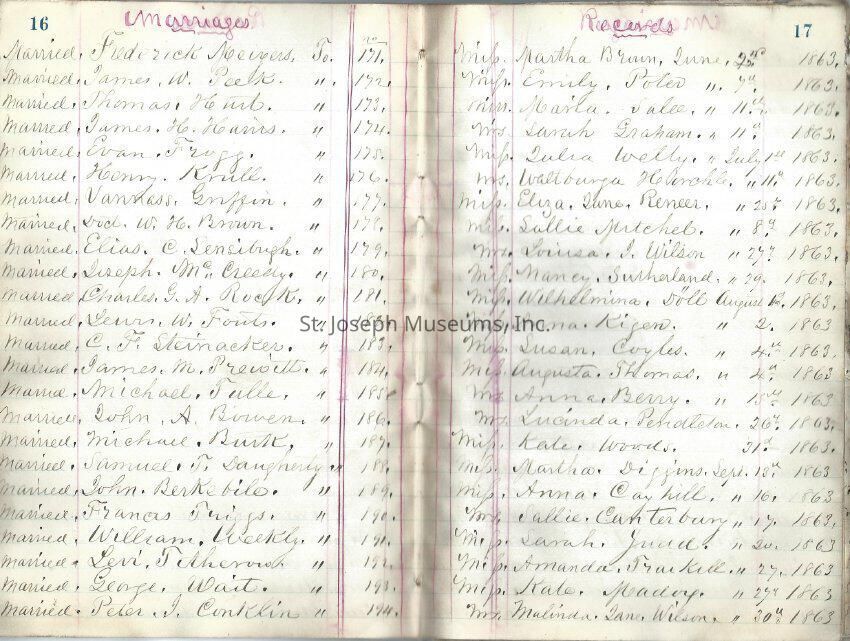 16 Marriages Records 17
Married, Frederick Meivers. To. no 171. Miss. Martha Brun, June, 2nd 1863.
Married, James. W. Peek. " 172. Miss. Emily. Poter " 7th 1863.
Married, Thomas. Hurt. " 173. Maria. " 11th 1863.
Married, James. H. Harris. " 174. Mrs Sarah Graham. " 11th 1863.
Married, Evan. Frogg. " 175. Miss. Julia Welty. " July 1st 1863.
Married, Henry. Krull. " 176. Mrs. Waltburga " 11th 1863.
Married, Vanness. Griffin. " 177. Miss. Eliza. Jane. Reneer. " 25th 1863.
Married, Doct. W. H. Brown. " 178. Mrs. Sallie Mitchel. " 8th 1863.
Married, Elias. C. Sensibugh. " 179. Mrs. Louisa. J. Wilson " 27th 1863.
Married, Joseph. McCreedy. " 180. Miss. Nancy. Sutherland. " 29. 1863.
Married, Charles. G. A. Rock. " 181. Miss. Wilhelmina. Doll August 1863.
Married, Lewis. W. Fouts. " Kigen. " 2. 1863.
St. Joseph Museums, Inc.
Married, C. F. Steinacker. " 183. Miss. Susan. Coyles. " 4th 1863
Married, James. M. Prewitt. " 184. Miss. Augusta. Thomas. " 4th 1863
Married, Michael. Tulle. " 185. Anna. Berry. " 18th 1863
Married, John. A. Bowen. " 186. Mrs. Lucinda. Pendleton. 26th 1863.
Married, Michael. Burk, " 187. Miss. Kate. Woods. 31st 1863.
Married, Samuel. F. Daugherty " 188. Miss. Martha. Diggins. Sept. 13th 1863
Married, John. Berkebile. " 189. Miss. Anna. Cayhill. " 16. 1863
Married, Francis Triggs. " 190. Mrs. Sallie. Canterbury " 17. 1863.
Married, William. Weekly. " 191. Miss. Sarah. Judd. " 20. 1863
Married, Levi. Titherow. " 192. Miss. Amanda. " 27. 1863
Married, George. Wait. " 193. Miss. Kate. Madoy. " 27th 1863
Married, Peter. J. Conklin " 194. Mrs. Malinda. Jane. Wilson. " 30th 1863